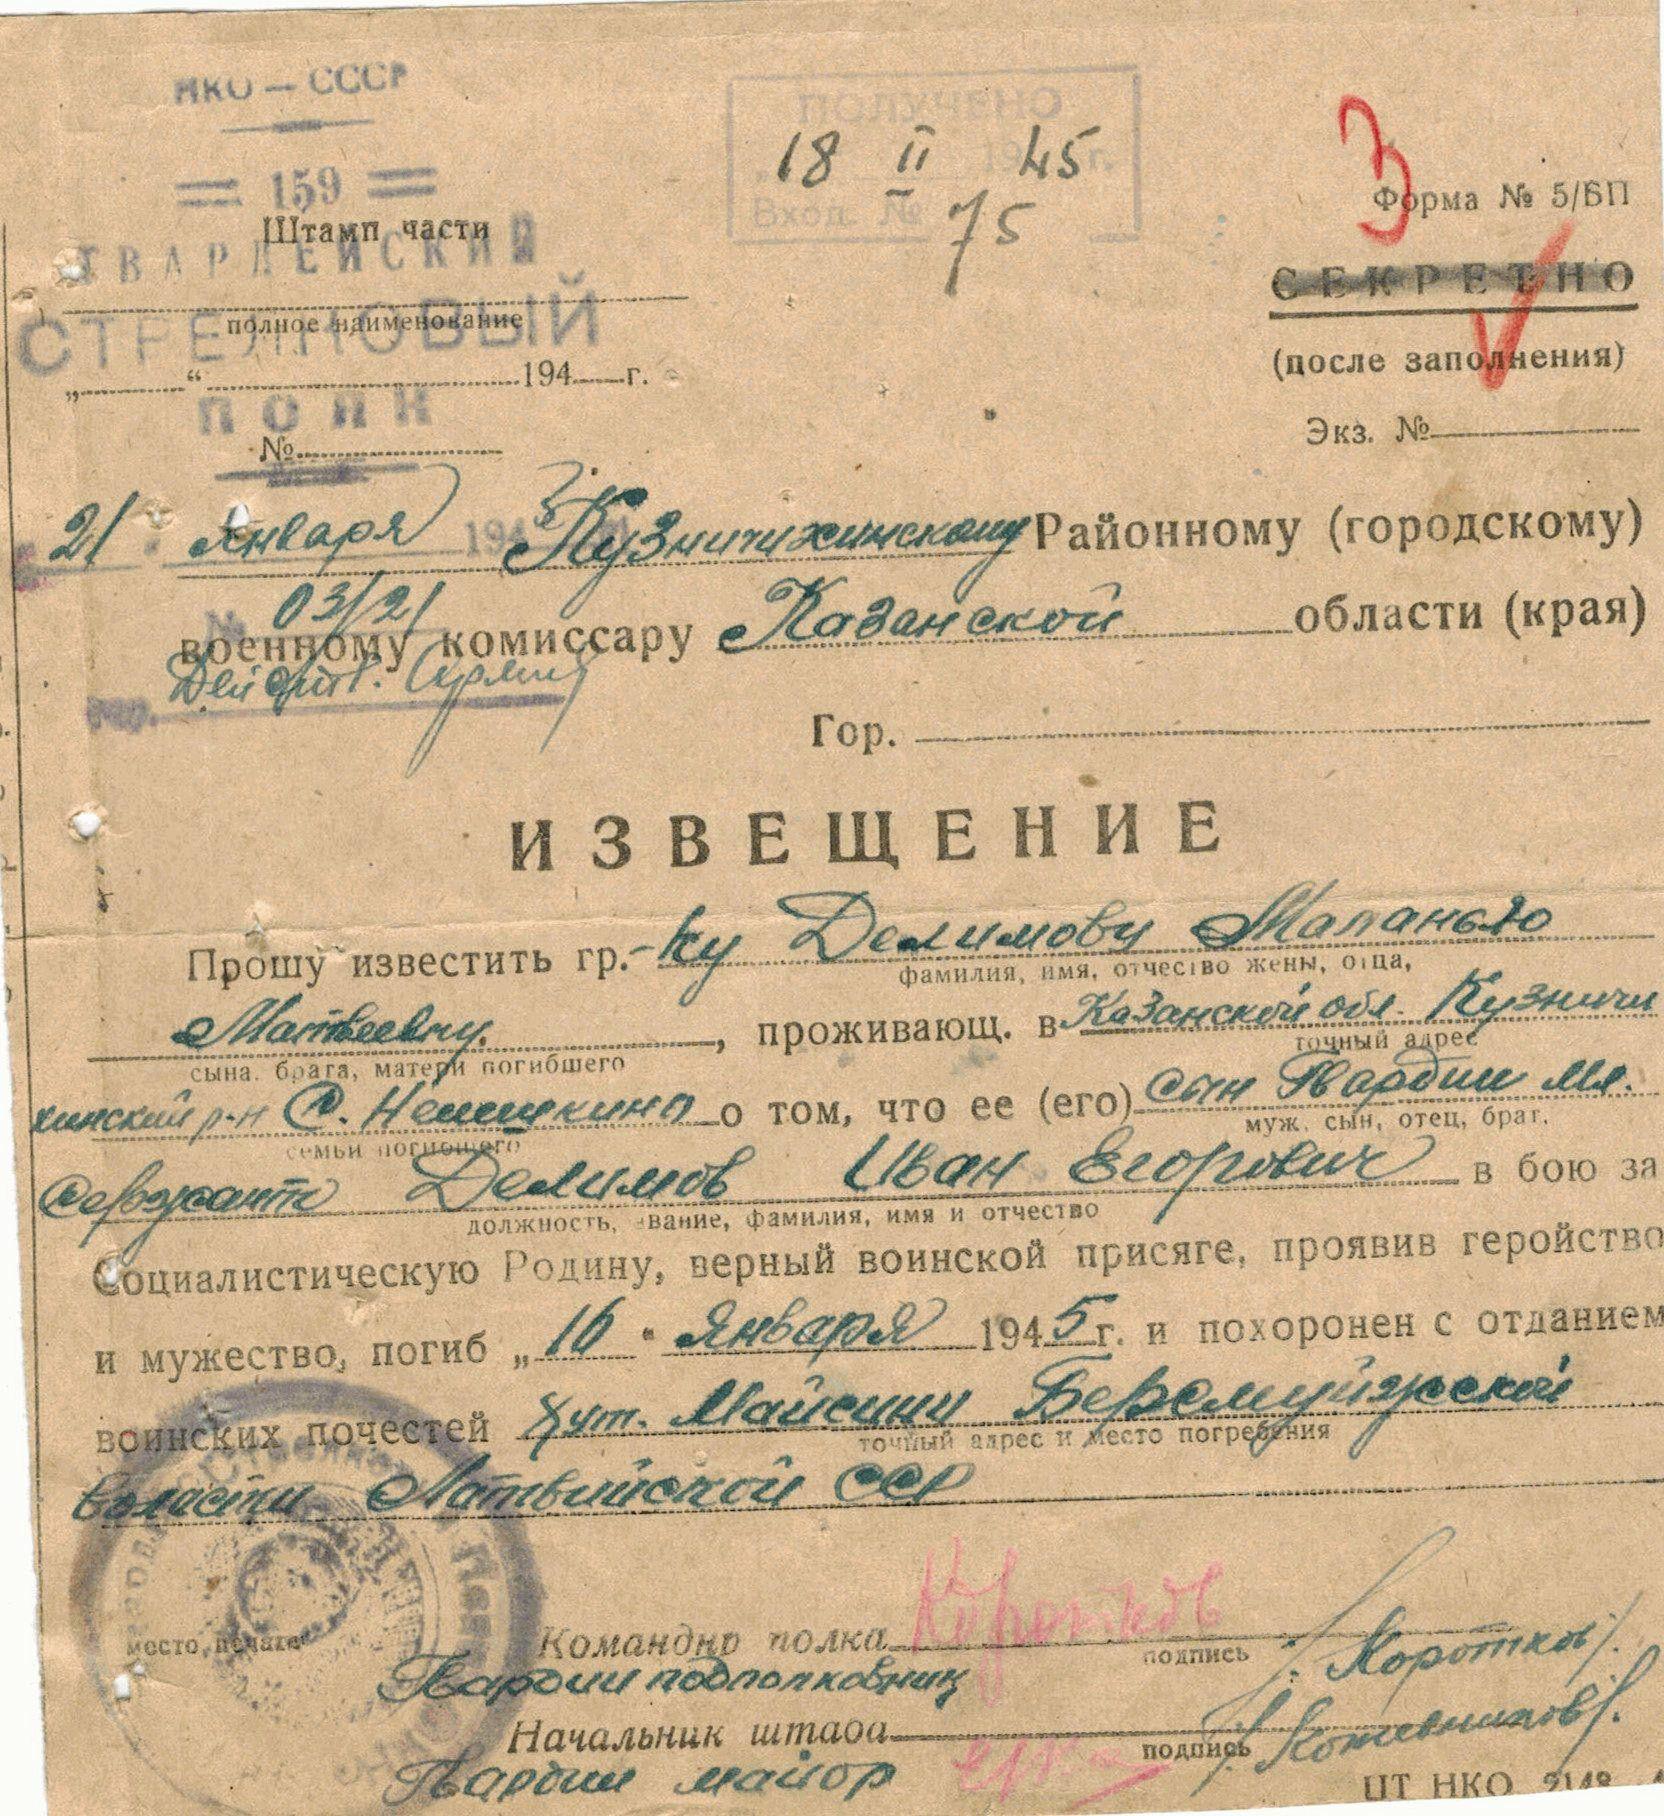 НКО — СССР
ПОЛУЧЕНО
18 II 1945 г.
Вход. № 75
3
Форма № 5/БП
159
Штамп части
ГВАРДЕЙСКИЙ
СЕКРЕТНО
полное наименование
СТРЕЛКОВЫЙ
(после заполнения)
„ “ 194 г.
ПОЛК
Экз. №
№
21 января 1945 Кузничихинскому Районному (городскому)
№ 03/21
военному комиссару Казанской области (края)
Действ. Армия
Гор.
ИЗВЕЩЕНИЕ
Прошу известить гр.-ку Делимову Маланью
фамилия, имя, отчество жены, отца,
Матвеевну. , проживающ. в Казанской обл. Кузничи
сына, брата, матери погибшего точный адрес
хинский р-н С. Немчкино о том, что ее (его) сын Гвардии мл.
семьи погибшего муж, сын, отец, брат.
сержант Делимов Иван Егорович в бою за
должность, звание, фамилия, имя и отчество
Социалистическую Родину, верный воинской присяге, проявив геройство
и мужество, погиб „16 " января 1945 г. и похоронен с отданием
воинских почестей хут. Майсини Берсмуйжской
точный адрес и место погребения
волости Латвийской ССР
место печати
Командир полка Коротков /Коротков/.
подпись
Гвардии подполковник
Начальник штаба /Кожевников/.
подпись
Гвардии майор
ЦТ НКО 2148